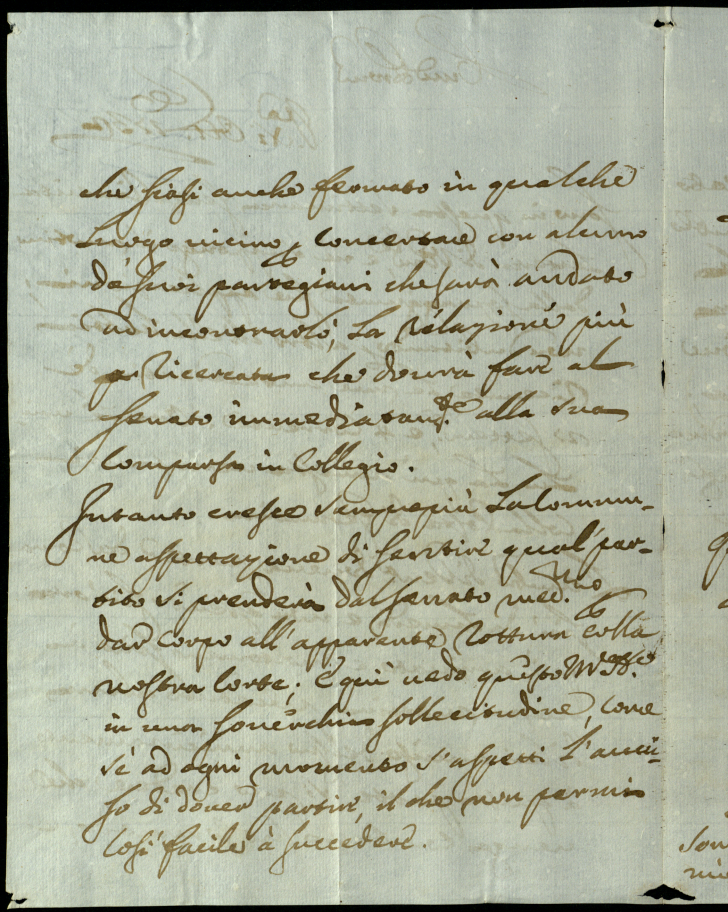 che siasi anche fermato in qualche
Luogo vicino p concertare con alcuno
de' suoi partegiani che sarà andato
ad incontrarlo, La relazione più
ricercata che dovrà fare al
Senato immediatam.te alla sua
Comparsa in Collegio.
Intanto cresce sempre più La commu-
ne aspettazione di sentire qual par-
tito si prenderà dal Senato med.mo p
dar corpo all'apparente rottura colla
nostra Corte; E quì vedo questo
in una soverchia sollecitudine, come
se ad ogni momento s'aspetti L'avvi-
so di dover partire, il che non parmi
così facile à succedere.